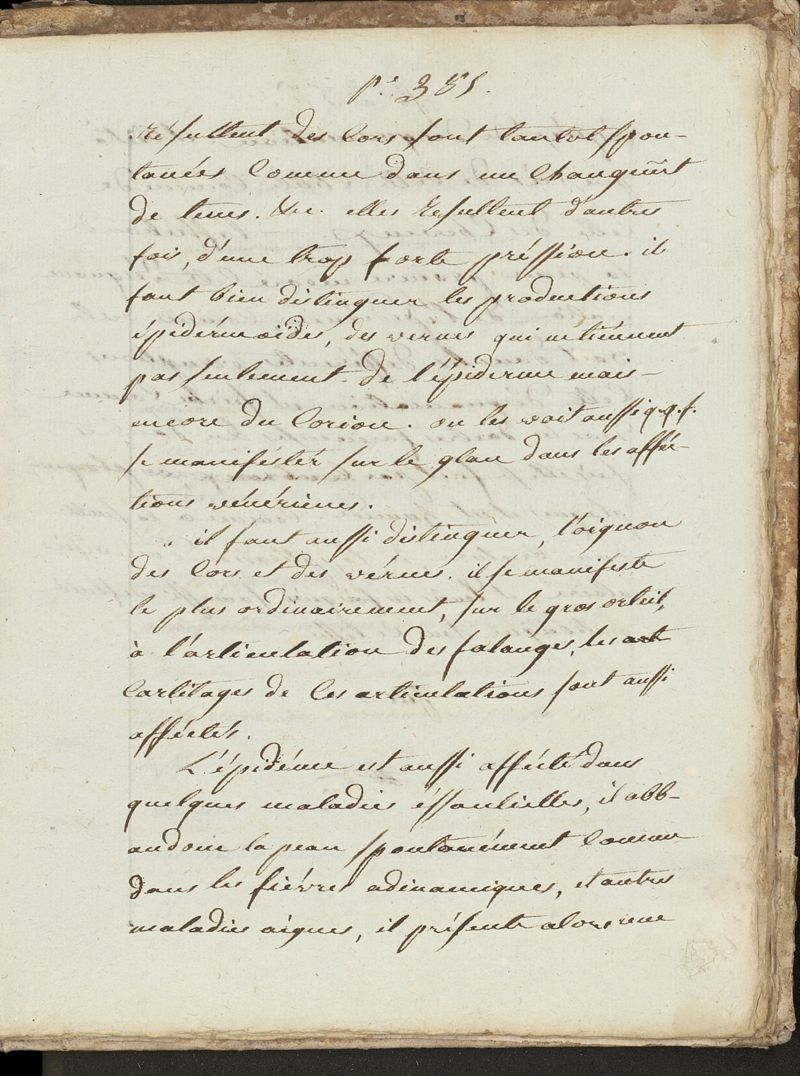 pe. 351.
résultent des Cors sont tantot spon-
tanées Comme dans un Changemt
de tems. &c. elles résultent d'autres
fois, d'une trop forte préssion. il
faut bien distinguer les productions
épidérmoïdes, des verues qui ne tiénnent
pas seulement de l'épiderme mais-
encore du Corion. on les voit aussi q.q.f.
se manifestér sur le glan dans les afféc-
tions vénériénes.
il faut aussi distinguer, l'oignon
des Cors et des vérues. il se manifeste
le plus ordinairement, sur le gros orteil,
à l'articulation des falanges, les art
Cartilages de Ces articulations sont aussi
afféctés.
L'épidérme est aussi affécté dans
quelques maladies éssentielles, il abb-
andone la peau spontanément Comme
dans les fiévres adinamiques, et autres
maladies aigues, il présente alors une